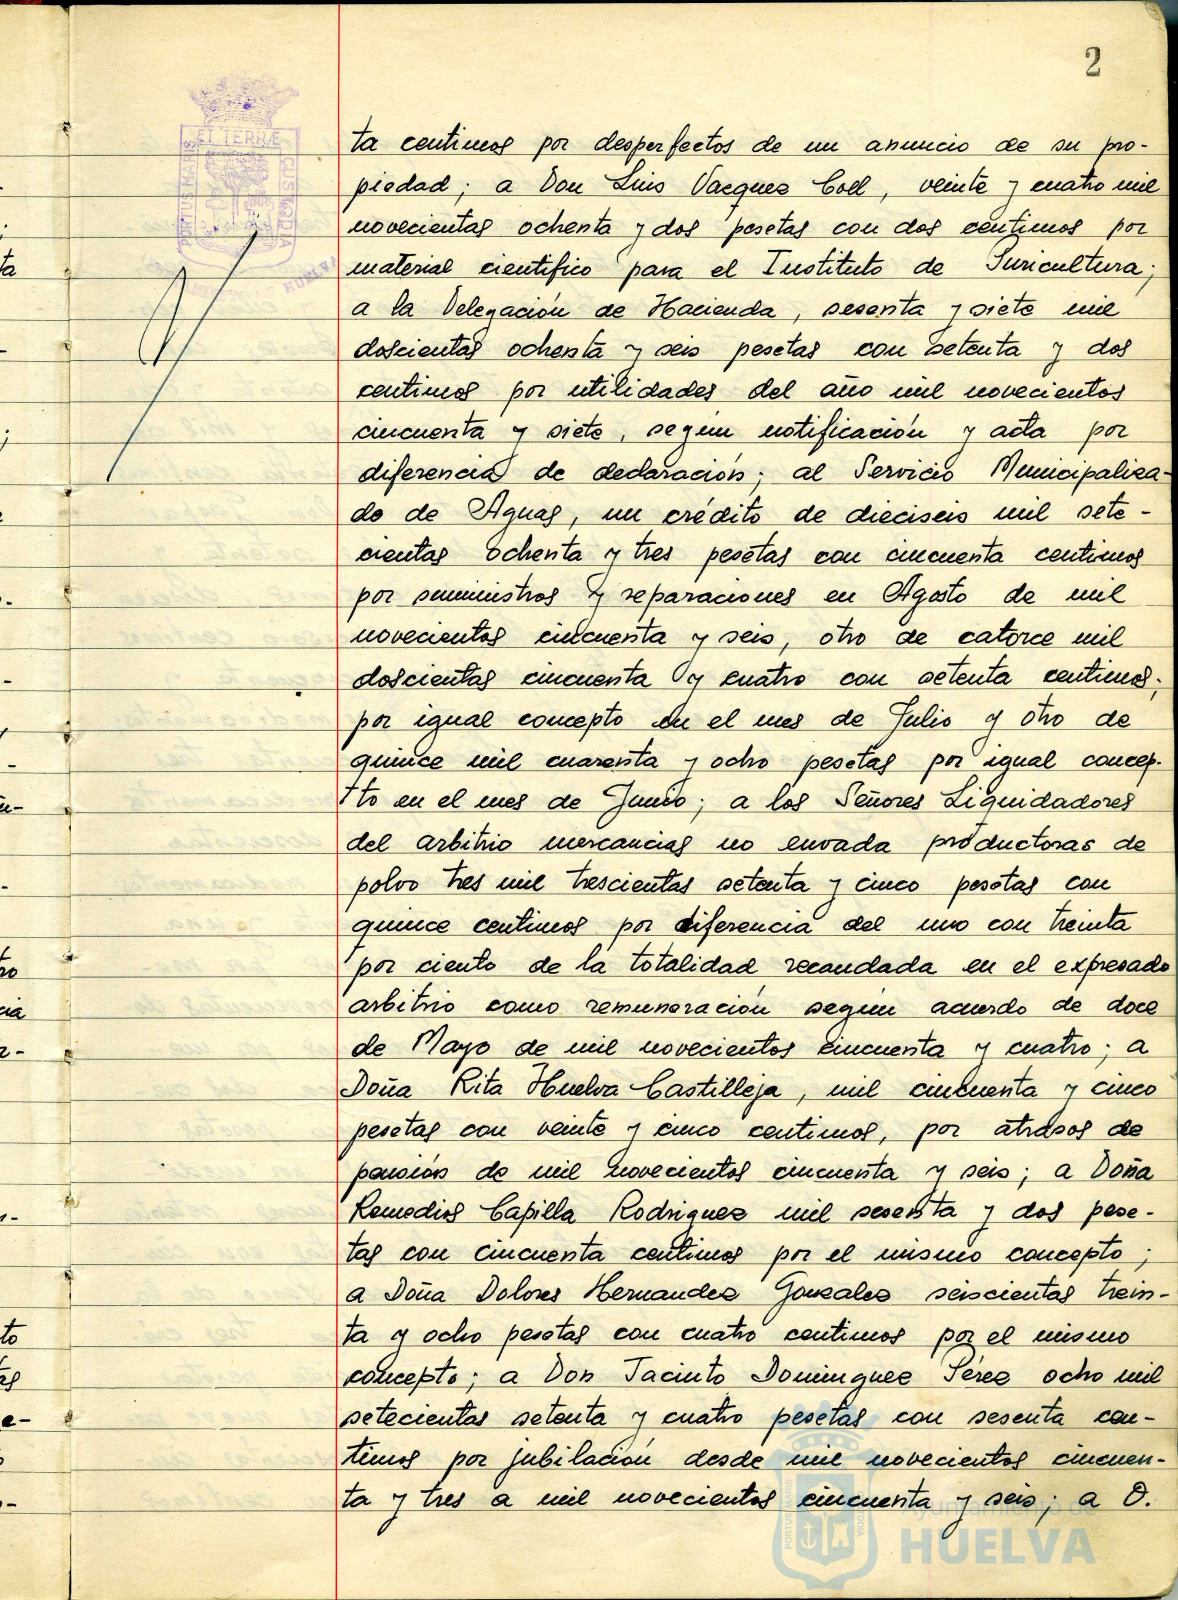 2
ET TERRÆ
PORTUS MARIS
CUSTODIA
HUELVA
ta centimos por desperfectos de un anuncio de su pro-
piedad; a Don Luis Vazquez Coll, veinte y cuatro mil
novecientas ochenta y dos pesetas con dos centimos por
material cientifico para el Instituto de Puricultura;
a la Delegación de Hacienda, sesenta y siete mil
doscientas ochenta y seis pesetas con setenta y dos
centimos por utilidades del año mil novecientos
cincuenta y siete, según notificación y acta por
diferencia de declaración; al Servicio Municipaliza-
do de Aguas, un crédito de dieciseis mil sete-
cientas ochenta y tres pesetas con cincuenta centimos
por suministros y reparaciones en Agosto de mil
novecientos cincuenta y seis, otro de catorce mil
doscientas cincuenta y cuatro con setenta centimos,
por igual concepto en el mes de Julio y otro de
quince mil cuarenta y ocho pesetas por igual concep-
to en el mes de Junio; a los Señores Liquidadores
del arbitrio mercancias no envada productoras de
polvo tres mil trescientas setenta y cinco pesetas con
quince centimos por diferencia del uno con treinta
por ciento de la totalidad recaudada en el expresado
arbitrio como remuneración según acuerdo de doce
de Mayo de mil novecientos cincuenta y cuatro; a
Doña Rita Huelva Castilleja, mil cincuenta y cinco
pesetas con veinte y cinco centimos, por atrasos de
pensión de mil novecientos cincuenta y seis; a Doña
Remedios Capilla Rodriguez mil sesenta y dos pese-
tas con cincuenta centimos por el mismo concepto;
a Doña Dolores Hernandez Gonzalez seiscientas trein-
ta y ocho pesetas con cuatro centimos por el mismo
concepto; a Don Jacinto Dominguez Pérez ocho mil
setecientas setenta y cuatro pesetas con sesenta cen-
timos por jubilación desde mil novecientos cincuen-
ta y tres a mil novecientos cincuenta y seis; a D.
Ayuntamiento de
HUELVA